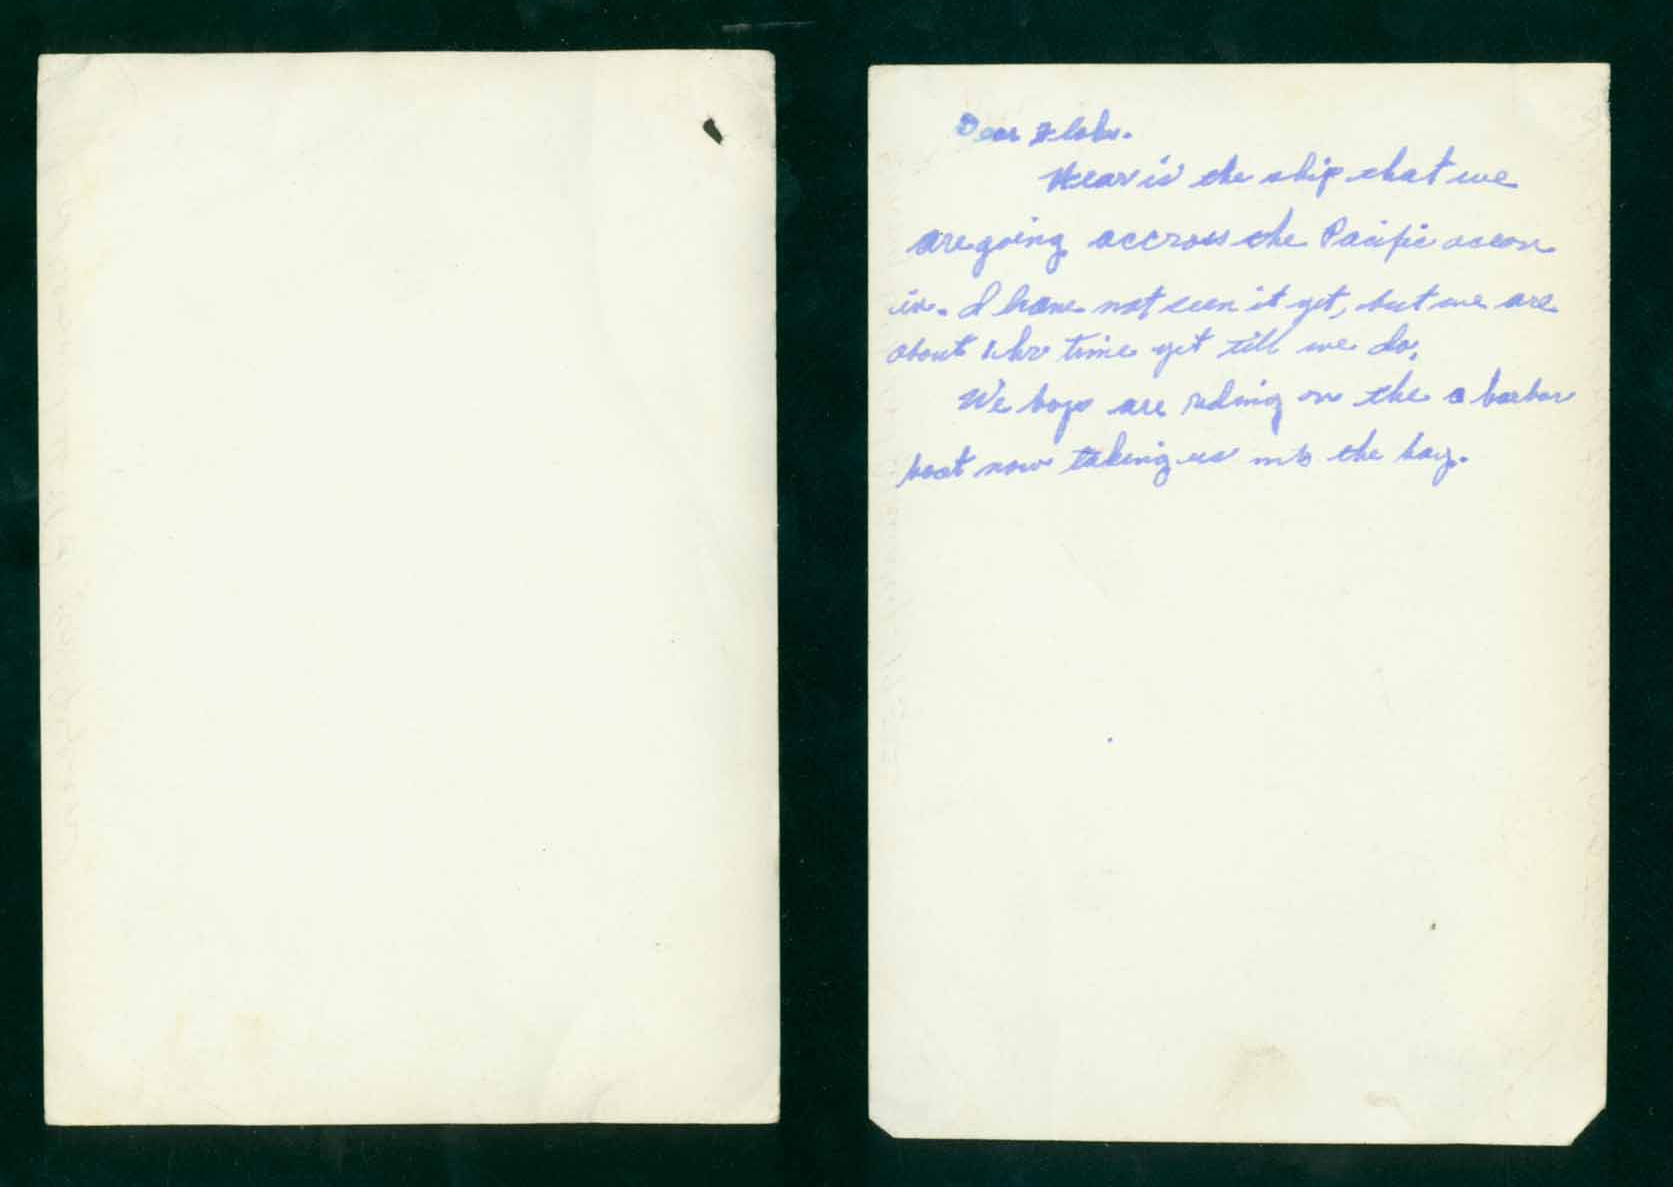 Dear
Hear is the ship that we
are going accross the Pacific ocean
in. I have not seen it yet, but we are
about 1 hr time yet till we do.
We boys are riding on the a harbor
boat now taking us into the bay.